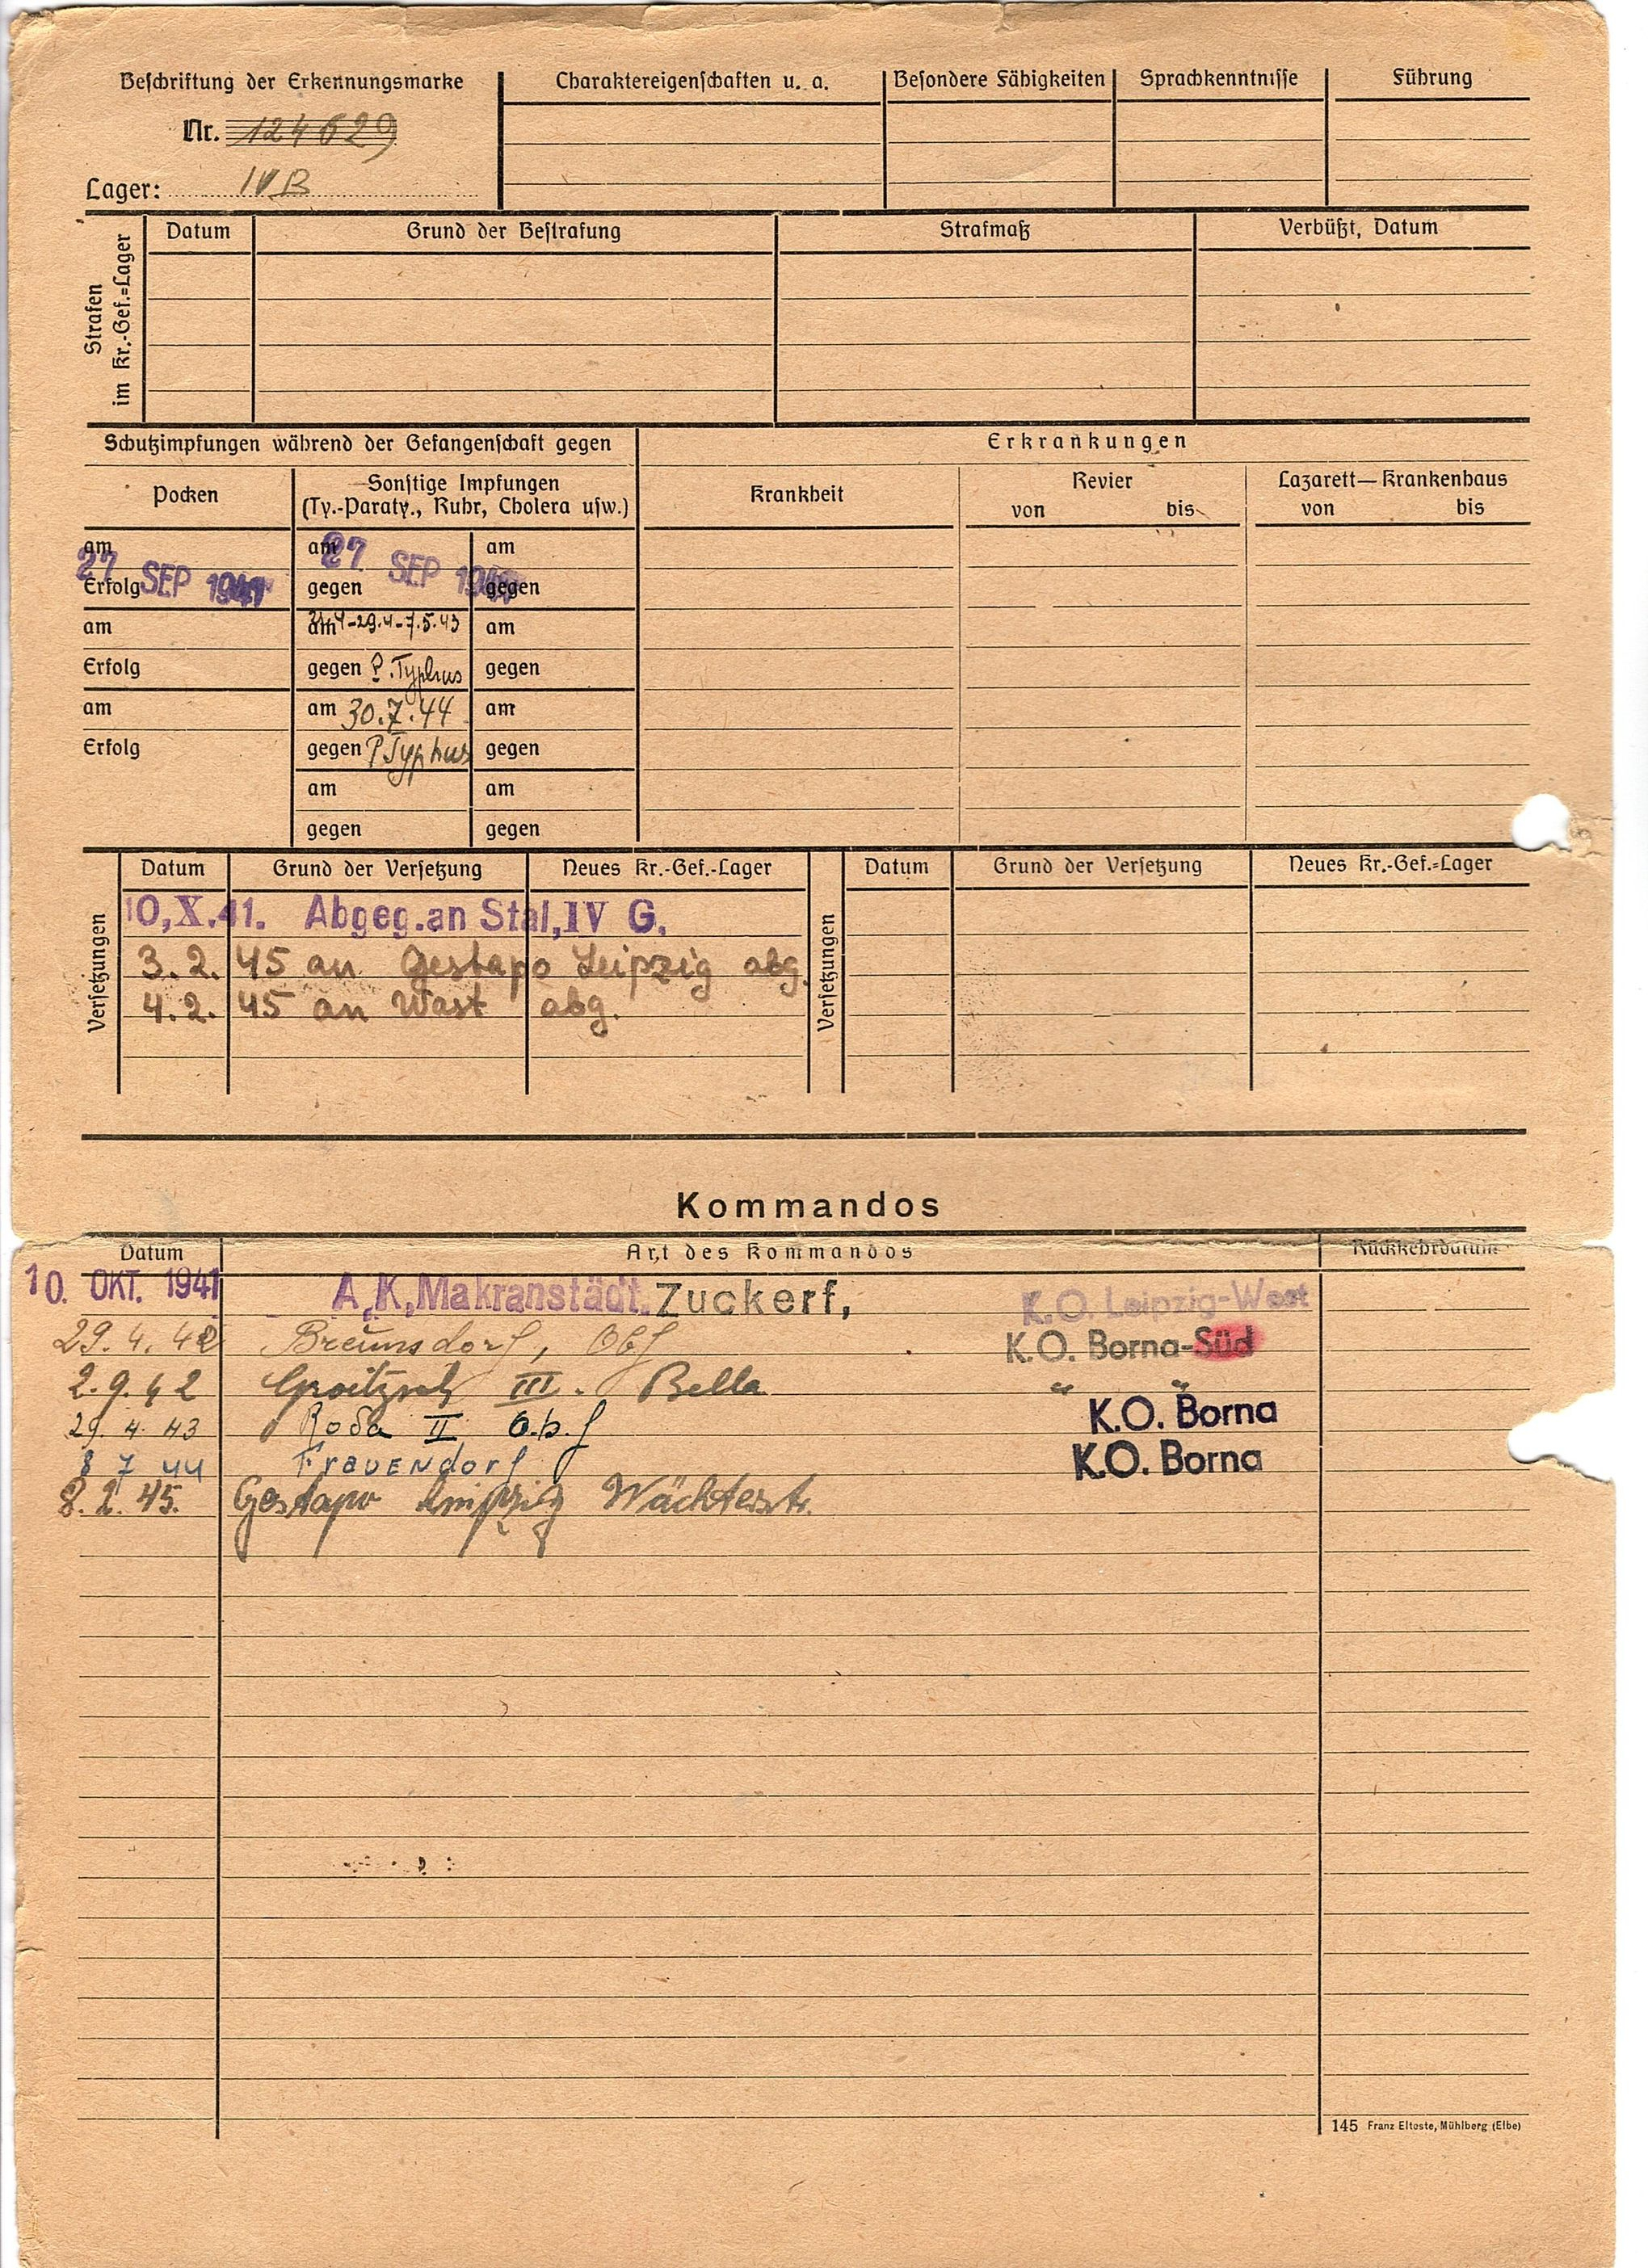 Beschriftung der Erkennungsmarke
Nr. 124629
Lager: IV B
Charaktereigenschaften u. a.
Besondere Fähigkeiten
Sprachkenntnisse
Führung
Strafen im Kr.-Gef.=Lager
Datum Grund der Bestrafung Strafmaß Verbüßt, Datum
Schutzimpfungen während der Gefangenschaft gegen
Erkrankungen
Pocken
Sonstige Impfungen
(Ty.-Paraty., Ruhr, Cholera usw.)
Krankheit
Revier
von bis
Lazarett—Krankenhaus
von bis
am am am
27 SEP 1941 27 SEP 1941
Erfolg gegen gegen
am am 29.4-7.5.43 am
Erfolg gegen P. Typhus gegen
am am 30.7.44 am
Erfolg gegen P Typhus gegen
am am
gegen gegen
Versetzungen
Datum Grund der Versetzung Neues Kr.-Gef.-Lager
10,X.41. Abgeg.an Stal,IV G.
3.2.45 an Gestapo Leipzig abg.
4.2.45 an Wast abg.
Versetzungen
Datum Grund der Versetzung Neues Kr.-Gef.=Lager
Kommandos
Datum Art des Kommandos Rückkehrdatum
10. OKT. 1941 A,K,Makranstädt. Zuckerf, K.O. Leipzig-West
29.4.42 Breunsdorf, Obf K.O. Borna-Süd
2.9.42 Groitzsch III. Bella " "
29.4.43 Roda II O.b.f K.O. Borna
8 7 44 Frauendorf K.O. Borna
8.2.45. Gestapo Leipzig Wächterstr.
145 Franz Elteste, Mühlberg (Elbe)